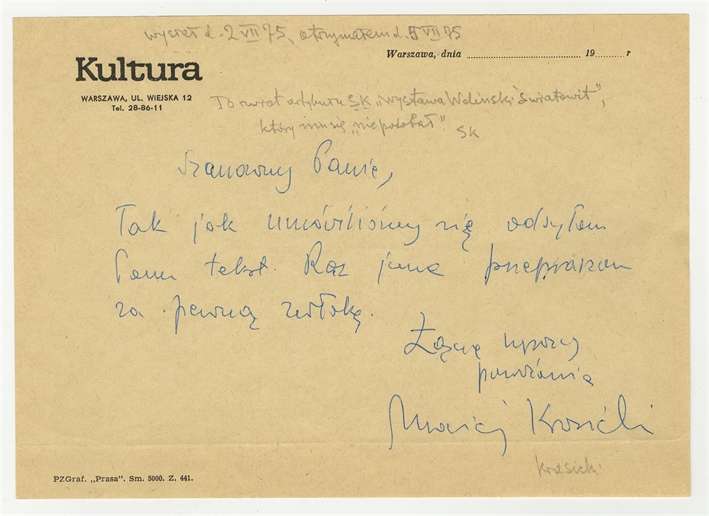 wysłał d. 2 VII 75, otrzymałem d. 5 VII 75
Kultura
WARSZAWA, UL. WIEJSKA 12
Tel. 28-86-11
Warszawa, dnia ........................ 19........ r
To zwrot artykułu SK „Wystawa Woliński Światowit",
który im się „nie podobał".
SK
Szanowny Panie,
Tak jak umówiliśmy się odsyłam
Panu tekst. Raz jeszcze przepraszam
za pewną zwłokę.
Łączę wyrazy
poważania
Maciej Krasicki
Krasicki
PZGraf. „Prasa". Sm. 5000. Z. 441.